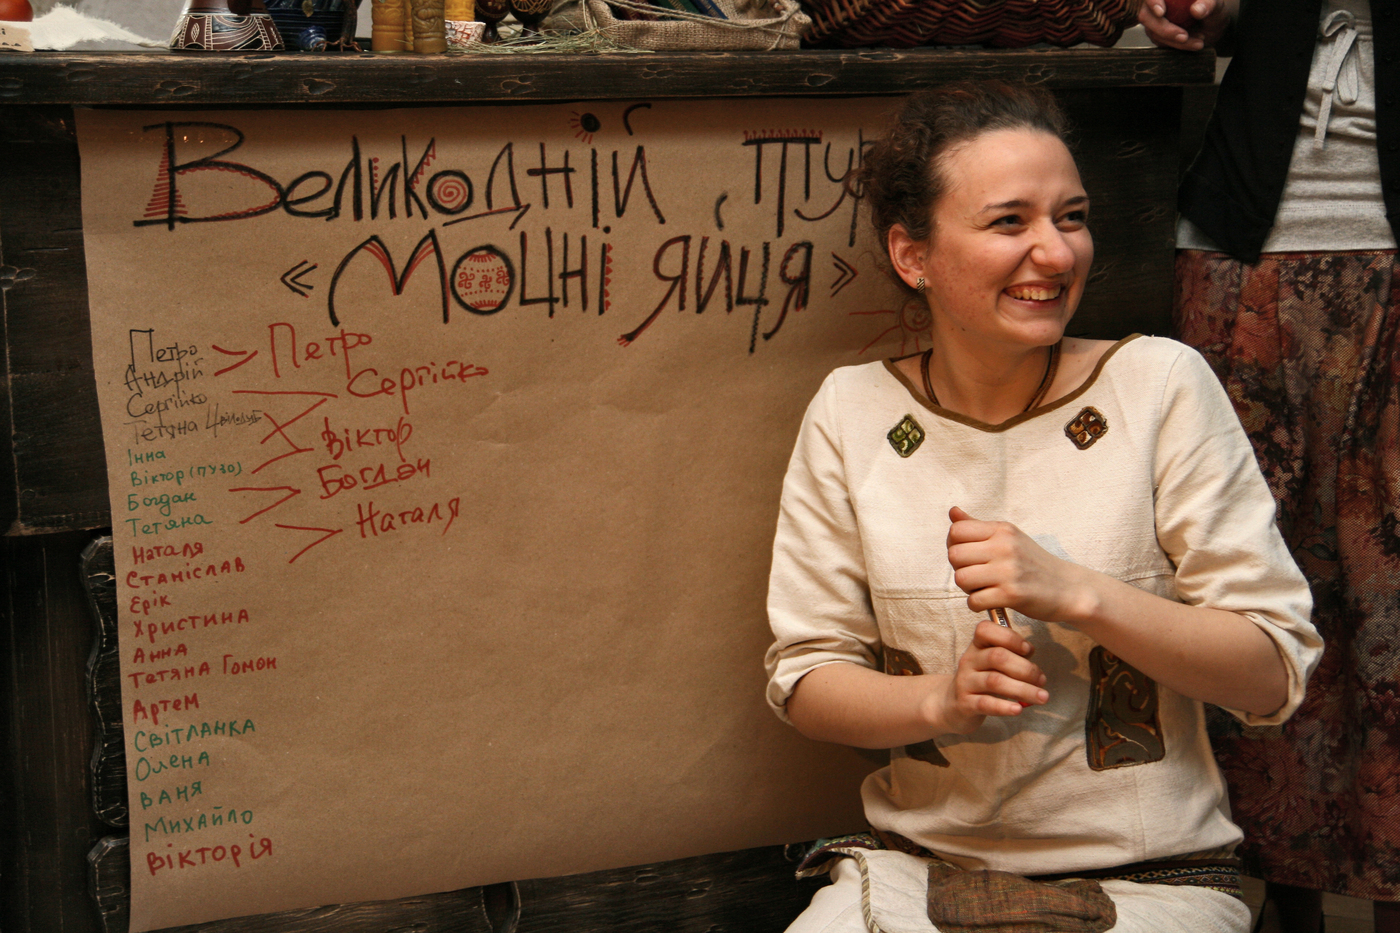 Великодній тур
«Моцні яйця»
Петро
Андрій
Сергійко
Тетяна
Інна
Віктор (пузо)
Богдан
Тетяна
Наталя
Станіслав
Ерік
Христина
Анна
Тетяна Гомон
Артем
Світланка
Олена
Ваня
Михайло
Вікторія
Петро
Сергійко
Віктор
Богдан
Наталя